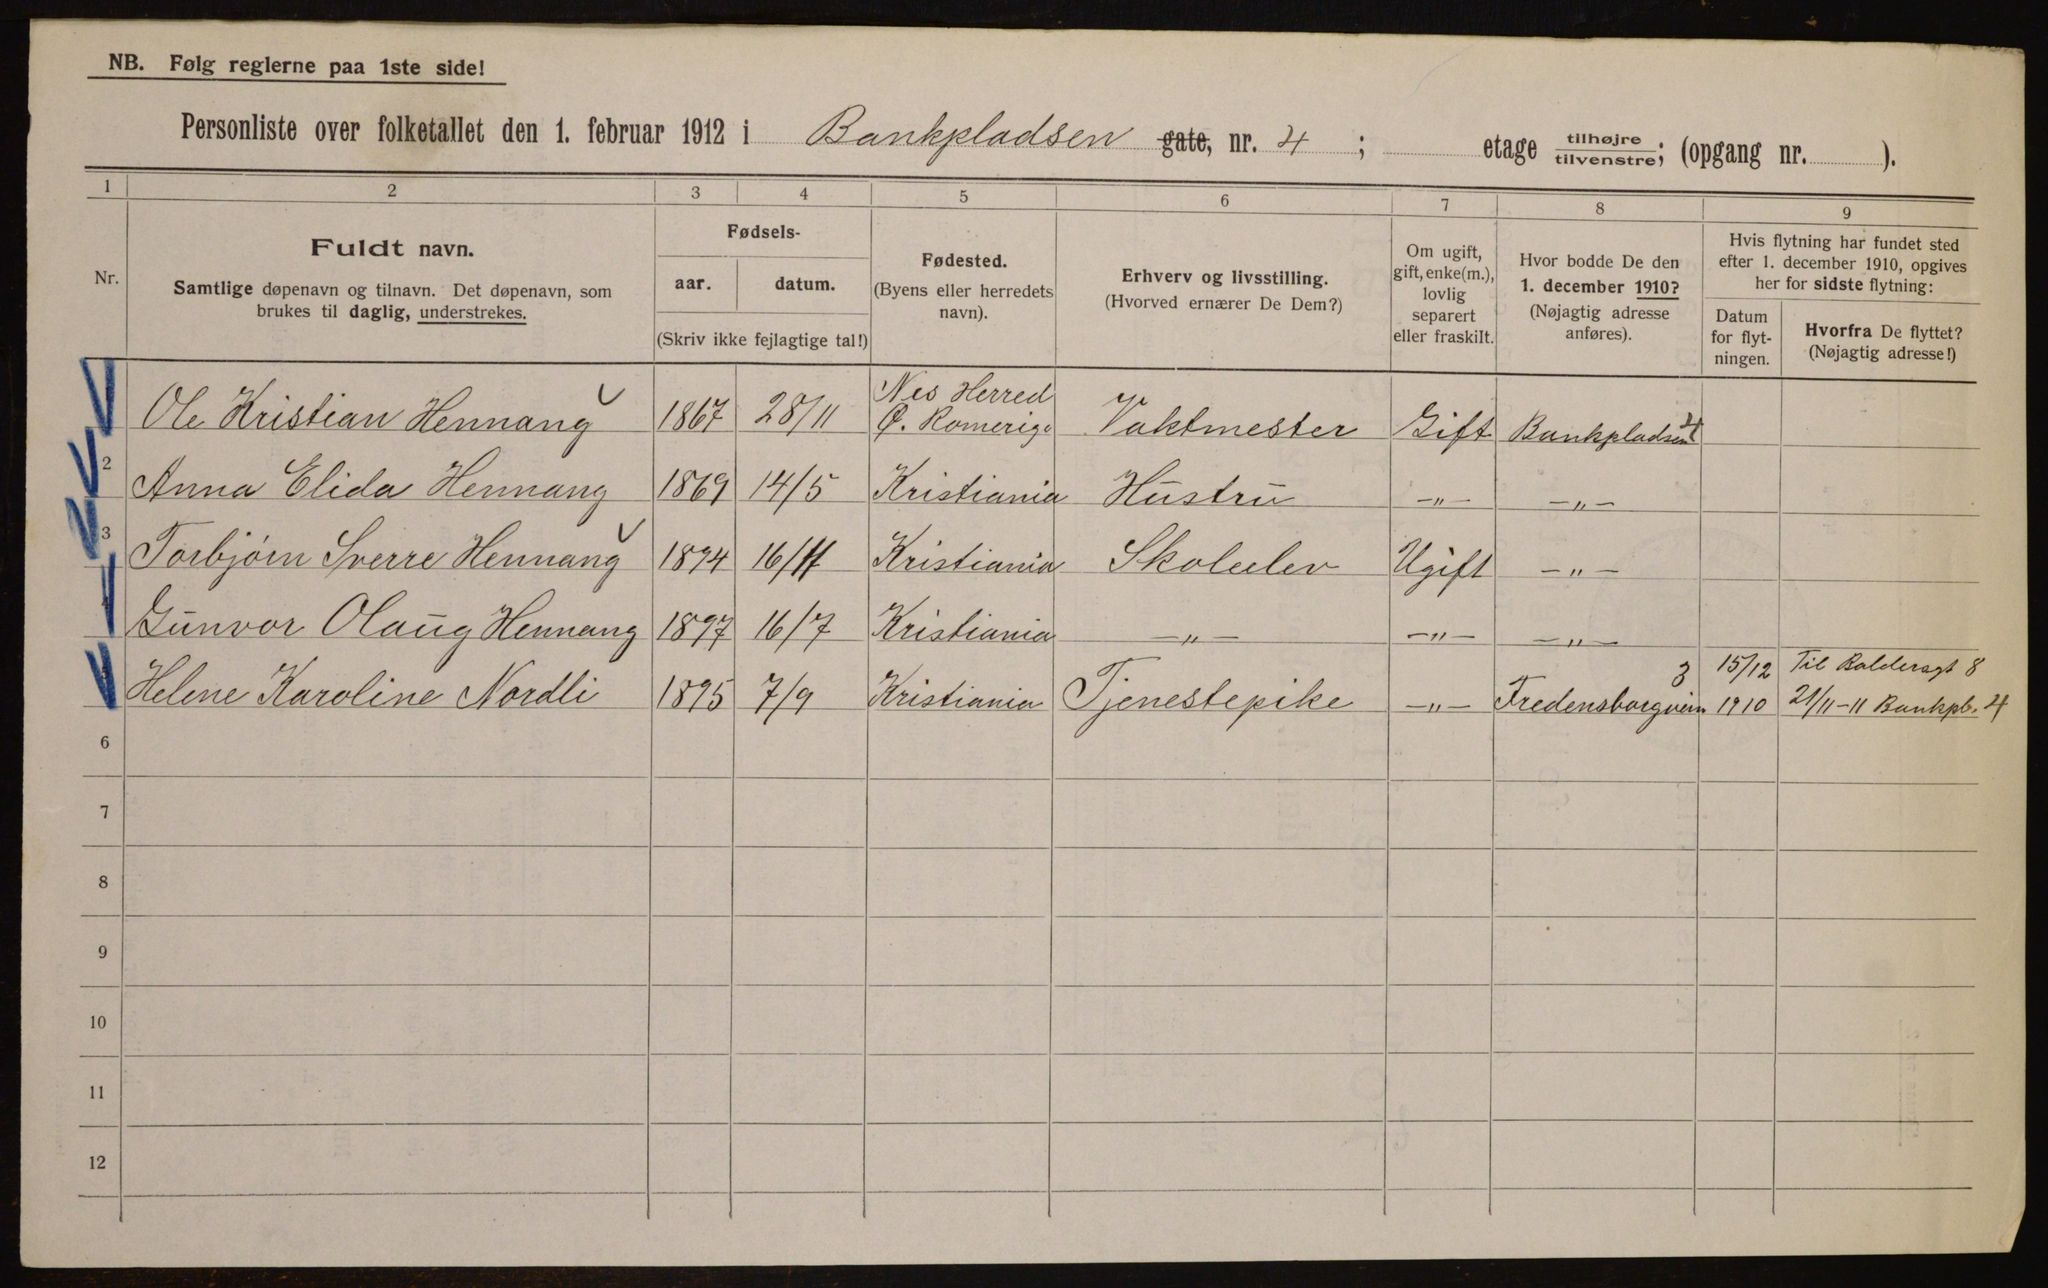 NB. Følg reglerne paa 1ste side!
Personliste over folketallet den 1. februar 1912 i Bankpladsen gate, nr. 4 ; etage tilhøjre/tilvenstre; (opgang nr. ).
1 2 3 4 5 6 7 8 9
Nr.
Fuldt navn.
Samtlige døpenavn og tilnavn. Det døpenavn, som
brukes til daglig, understrekes.
Fødsels-
aar. datum.
(Skriv ikke fejlagtige tal!)
Fødested.
(Byens eller herredets
navn).
Erhverv og livsstilling.
(Hvorved ernærer De Dem?)
Om ugift,
gift, enke(m.),
lovlig
separert
eller fraskilt.
Hvor bodde De den
1. december 1910?
(Nøjagtig adresse
anføres).
Hvis flytning har fundet sted
efter 1. december 1910, opgives
her for sidste flytning:
Datum
for flyt-
ningen.
Hvorfra De flyttet?
(Nøjagtig adresse!)
Nes Herred
Ole Kristian Hennang 1867 28/11 Ø. Romerige Vaktmester Gift Bankpladsen 4
2 Anna Elida Hennang 1869 14/5 Kristiania Hustru -"- -"-
3 Torbjørn Sverre Hennang 1894 16/11 Kristiania Skoleelev Ugift -"-
Gunvor Olaug Hennang 1897 16/7 Kristiania -"- -"- -"-
3 15/12 Til Baldersgt 8
Helene Karoline Nordli 1895 7/9 Kristiania Tjenestepike -"- Fredensborgvein 1910 21/11-11 Bankpl. 4
6
7
8
9
10
11
12